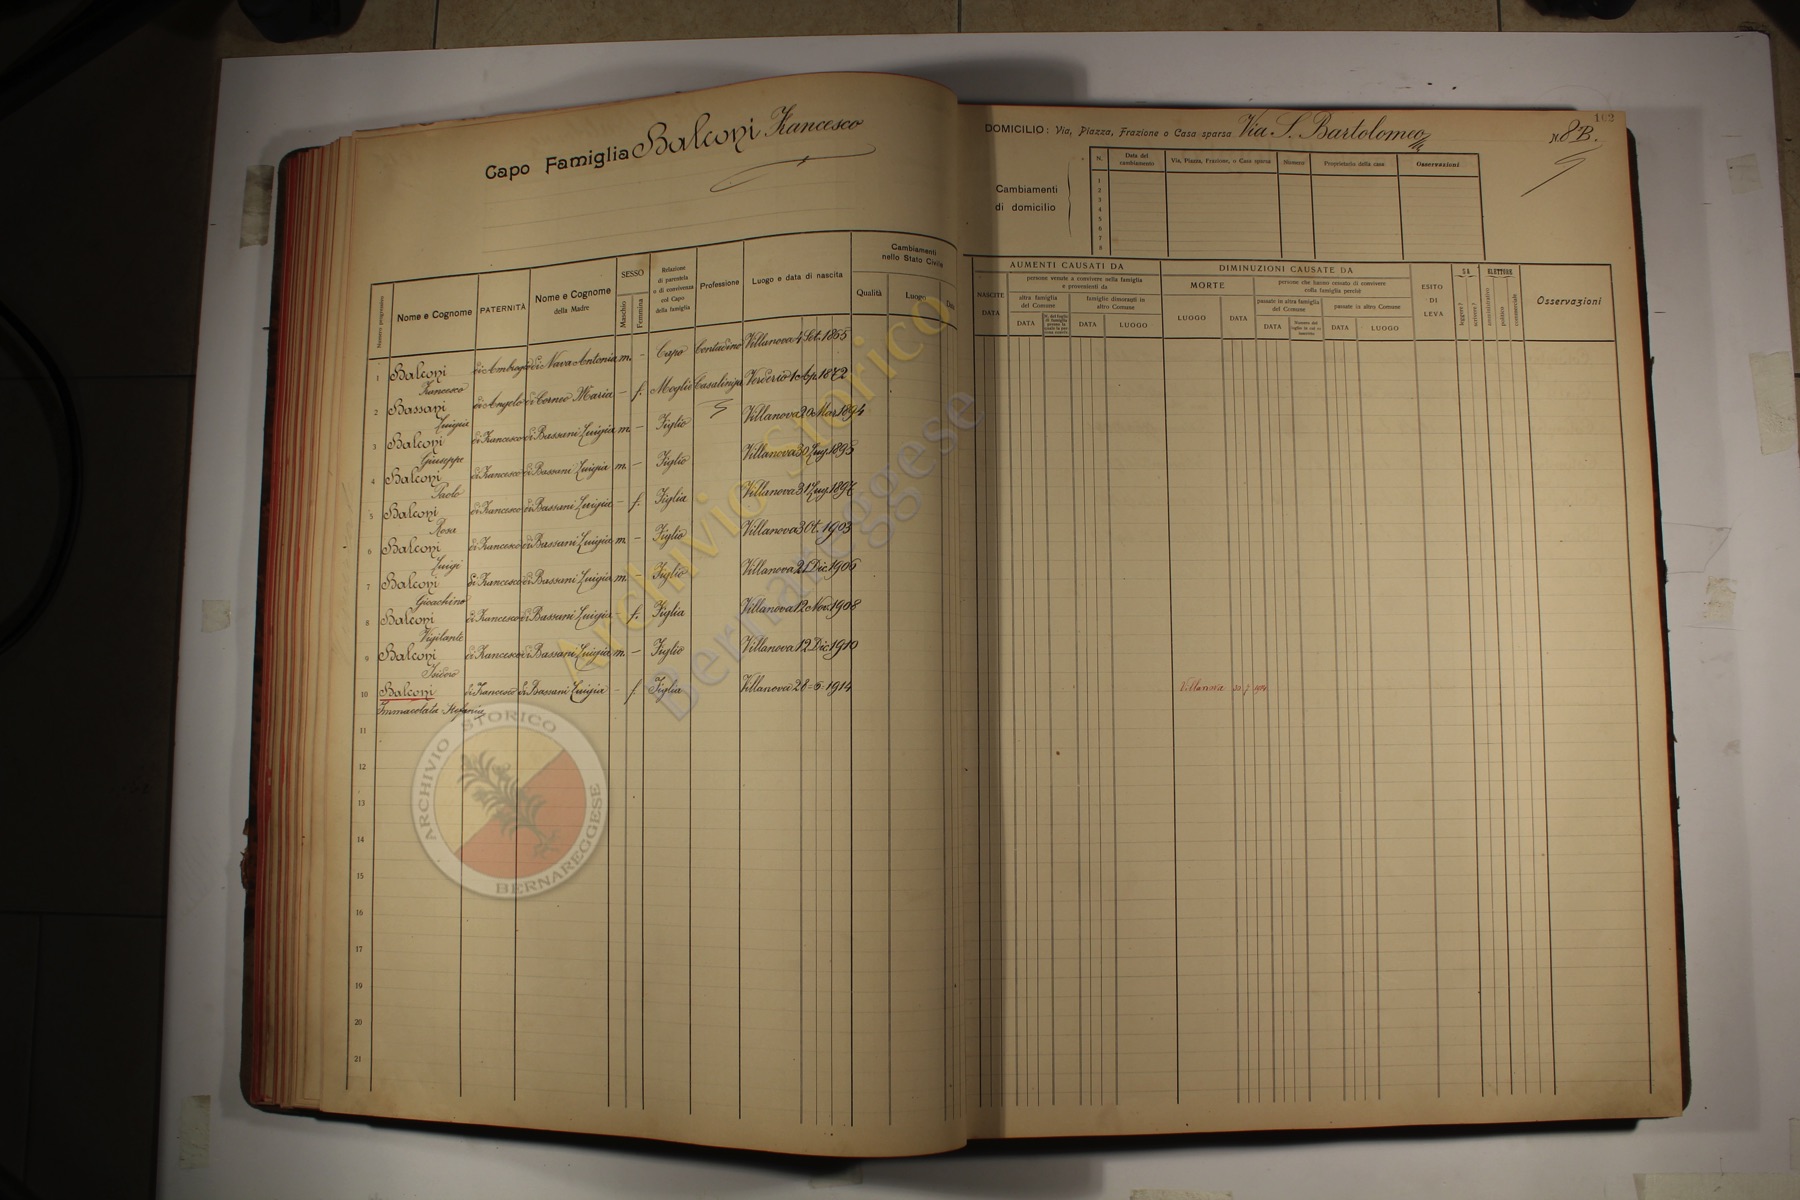 Capo Famiglia Balconi Francesco
102
DOMICILIO: Via, Piazza, Frazione o Casa sparsa Via S. Bartolomeo N. 8 B.
Cambiamenti di domicilio
N. Data del cambiamento Via, Piazza, Frazione, o Casa sparsa Numero Proprietario della casa Osservazioni
1
2
3
4
5
6
7
8
Numero progressivo Nome e Cognome PATERNITÀ Nome e Cognome della Madre SESSO Maschio Femmina Relazione di parentela o di convivenza col Capo della famiglia Professione Luogo e data di nascita Cambiamenti nello Stato Civile Qualità Luogo Data
NASCITE DATA AUMENTI CAUSATI DA persone venute a convivere nella famiglia e provenienti da altra famiglia del Comune DATA famiglie dimoranti in altro Comune DATA LUOGO
DIMINUZIONI CAUSATE DA MORTE LUOGO DATA persone che hanno cessato di convivere colla famiglia perchè passate in altra famiglia del Comune DATA passate in altro Comune DATA LUOGO
ESITO DI LEVA SA leggere? scrivere? ELETTORE amministrativo politico commerciale Osservazioni
1 Balconi Francesco di Ambrogio di Nava Antonia m. – Capo Contadino Villanova 4 Set. 1865
2 Bassani Luigia di Angelo di Corneo Maria – f. Moglie Casalinga Verderio 1 Ap. 1872
3 Balconi Giuseppe di Francesco di Bassani Luigia m. – Figlio Villanova 20 Mar. 1894
4 Balconi Paolo di Francesco di Bassani Luigia m. – Figlio Villanova 30 Lug. 1895
5 Balconi Rosa di Francesco di Bassani Luigia – f. Figlia Villanova 31 Lug. 1897
6 Balconi Luigi di Francesco di Bassani Luigia m. – Figlio Villanova 3 Ot. 1903
7 Balconi Gioachino di Francesco di Bassani Luigia m. – Figlio Villanova 21 Dic. 1906
8 Balconi Vigilante di Francesco di Bassani Luigia – f. Figlia Villanova 12 Nov. 1908
9 Balconi Isidoro di Francesco di Bassani Luigia m. – Figlio Villanova 12 Dic. 1910
10 Balconi Immacolata Stefania di Francesco di Bassani Luigia – f. Figlia Villanova 28-5-1914 Villanova
11
12
13
14
15
16
17
18
19
20
21
Archivio Storico
Bernareggese
ARCHIVIO STORICO
BERNAREGGESE